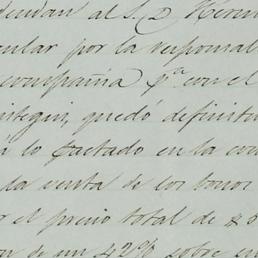 al S. D. Hern
cular por la responsa
compañia pª con el
ntegui, quedó definitiv
á lo pactado en la con
la venta de los bonos
r el precio total de $
on de un 42% sobre su